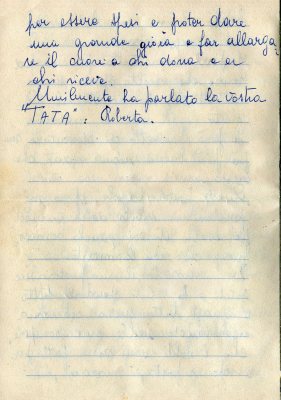 per essere spesi e poter dare
una grande gioia e far allarga
re il cuore a chi dona e a
chi riceve.
Umilmente ha parlato la vostra
"TATA". Roberta.